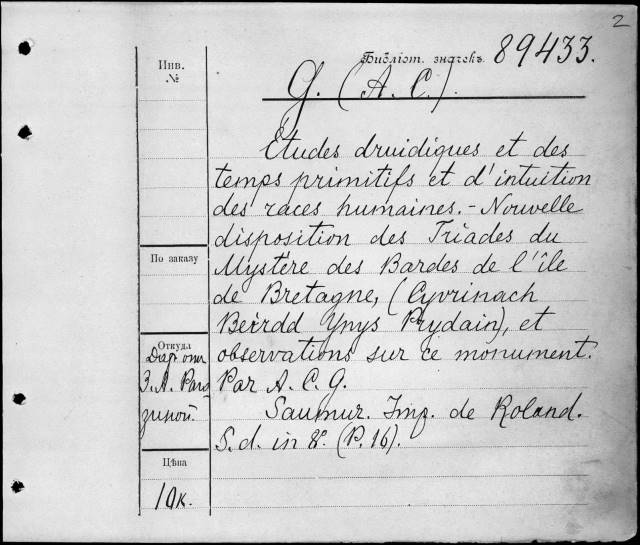 2
Инв.
№
Библіот. значекъ 89433.
G. (A. C.).
Études druidiques et des
temps primitifs et d'intuition
des races humaines. - Nouvelle
disposition des Triades du
Mystère des Bardes de l'île
de Bretagne, (Cyvrinach
Beirdd Ynys Prydain), et
observations sur ce monument.
Par A. C. G.
Saumur. Imp. de Roland.
S. d. in 8º. (P. 16).
По заказу
Откуда
Даръ отъ
З. А. Раго
зиной.
Цѣна
10к.